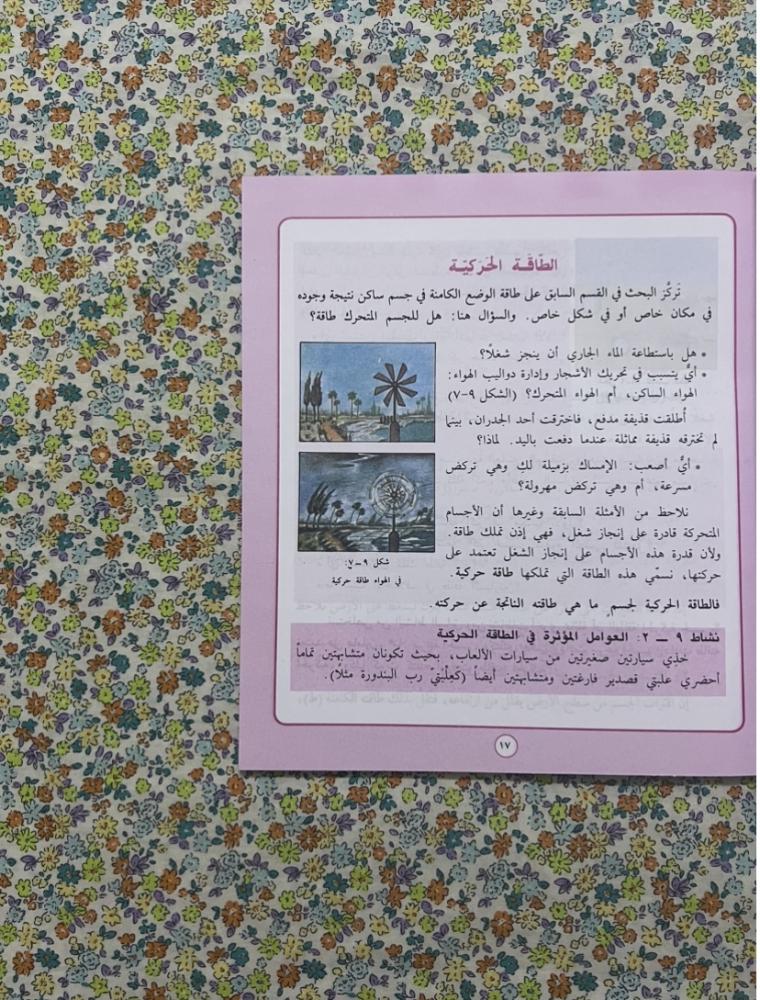 الطّاقَة الحَرَكيّة
تَركَّزَ البحث في القسم السابق على طاقة الوضع الكامنة في جسم ساكن نتيجة وجوده
في مكان خاص أو في شكل خاص. والسؤال هنا: هل للجسم المتحرك طاقة؟
• هل باستطاعة الماء الجاري أن ينجز شغلاً؟
• أيٌّ يتسبب في تحريك الأشجار وإدارة دواليب الهواء:
الهواء الساكن، أم الهواء المتحرك؟ (الشكل ٩-٧)
أُطلقت قذيفة مدفع، فاخترقت أحد الجدران، بينما
لم تخترقه قذيفة مماثلة عندما دفعت باليد. لماذا؟
• أيُّ أصعب: الإمساك بزميلة لكِ وهي تركض
مسرعة، أم وهي تركض مهرولة؟
نلاحظ من الأمثلة السابقة وغيرها أن الأجسام
المتحركة قادرة على إنجاز شغل، فهي إذن تملك طاقة.
ولأن قدرة هذه الأجسام على إنجاز الشغل تعتمد على
حركتها، نسمّي هذه الطاقة التي تملكها طاقة حركية.
شكل ٩-٧:
في الهواء طاقة حركية
فالطاقة الحركية لجسمٍ ما هي طاقته الناتجة عن حركته.
نشاط ٩ - ٢: العوامل المؤثرة في الطاقة الحركية
خذي سيارتين صغيرتين من سيارات الألعاب، بحيث تكونان متشابهتين تماماً
أحضري علبتي قصدير فارغتين ومتشابهتين أيضاً (كَعِلْبَتيْ رب البندورة مثلاً).
١٧